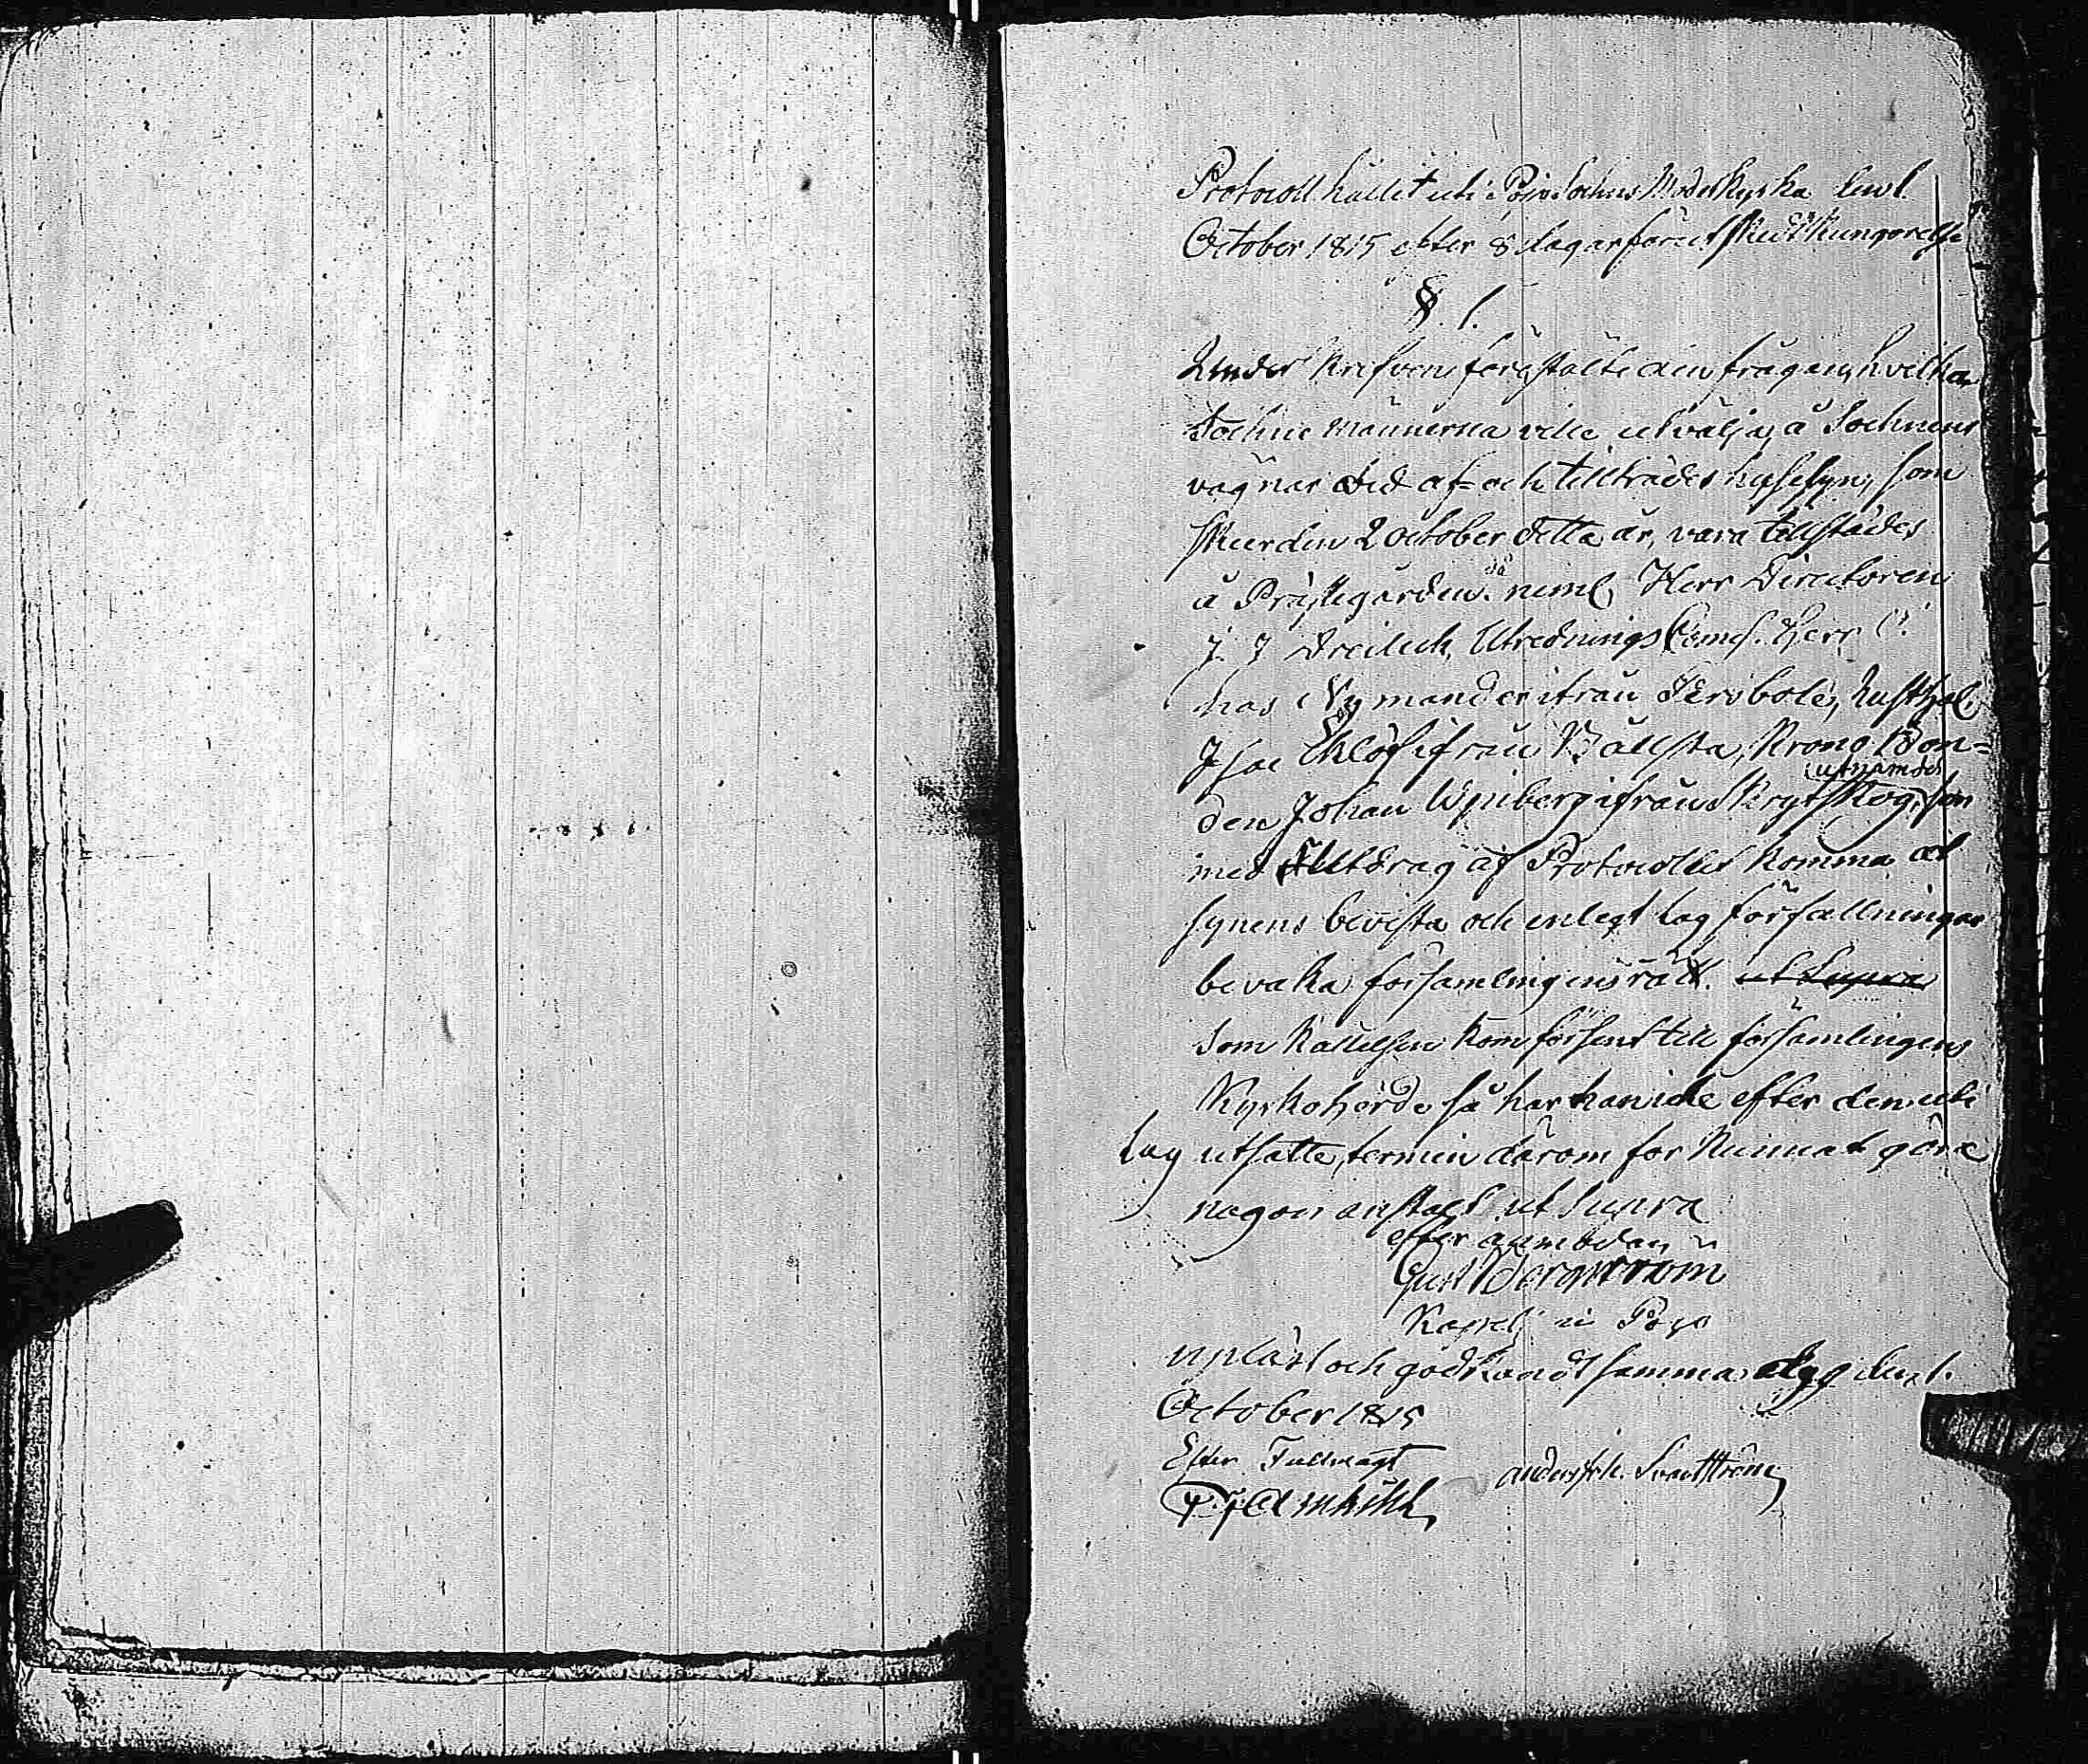 Protocoll hållit uti Pojo Sochns Moderkyrka den 1.
October 1815 efter 8 dagar förut skedt Kungörelse
§. 1.
Under skrifven förestälte den frågan, hvilka
Sochne männerna ville utvälja, å Sochnens
vägnar vid af- och tillträdes husesyn, som
skier den 2 october detta år, vara tillstädes
å Prästegården, då neml. Herr Directoren
J. J Dreilick, Utrednings Comis. Herr C.
has Nymander ifrån Persböle, Rusthol.
Isac Eklöf ifrån Bällsta, Krono Bon=
utnämdes
den Johan Wynberg ifrån Skryfskog, som
med Utdrag af Protocollet komma at
synens bevista och enlegt lag författningar
bevaka församlingens rätt. ut supra
Som Kallelsen kom försent till församlingens
Kyrkohärde, så har han icke efter den uti
lag utsatte, termin därom for kunnat göra
någon anstalt ut supra
efter anmodan
Gust Bergström
Kapell. i Pojo
upläst och godkändt samma dag den 1.
October 1815
Efter Fullmagt
Anders Joh. Svartström